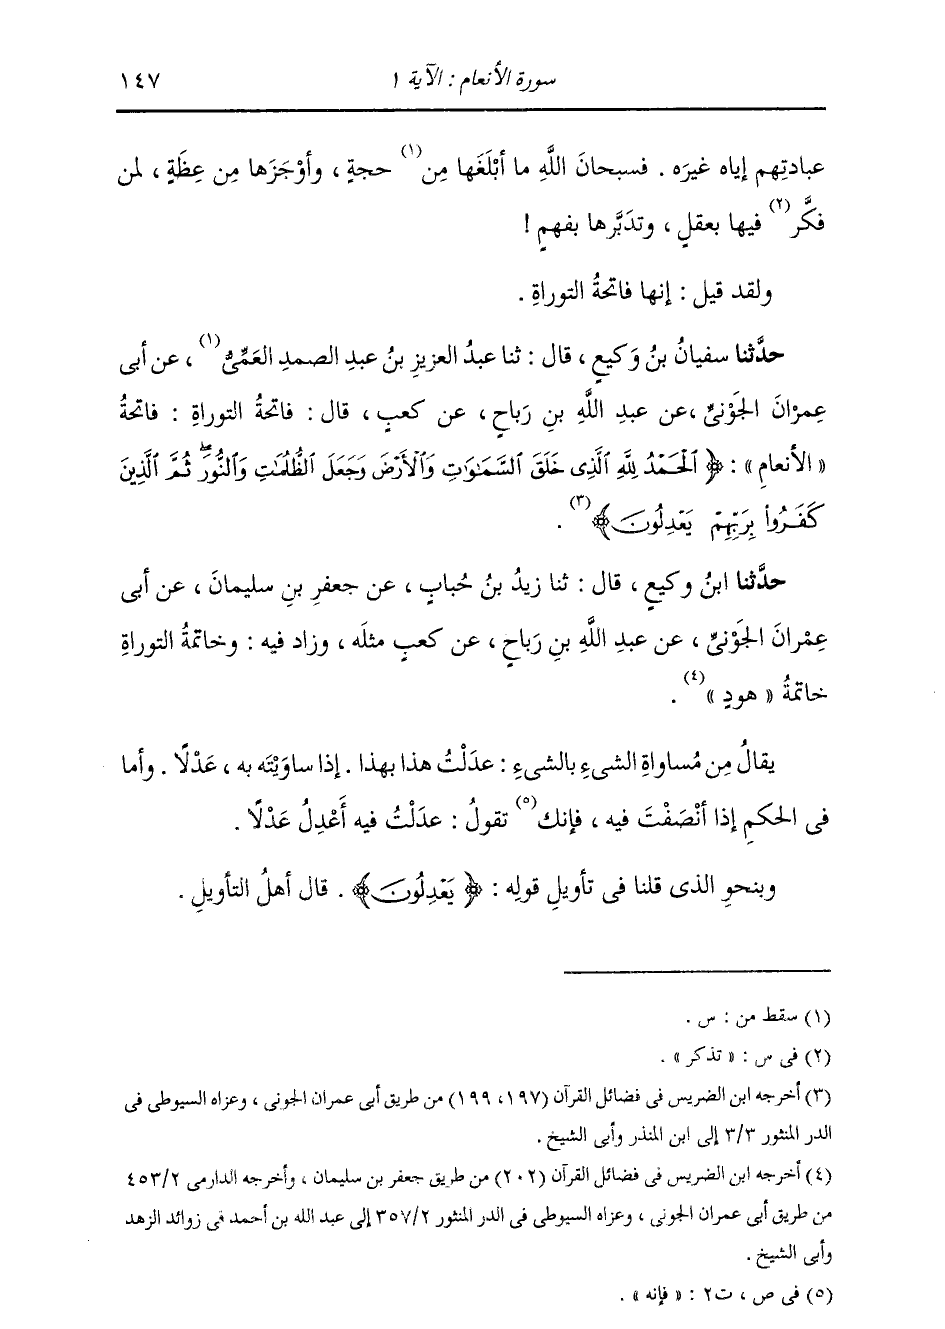 سورة الأنعام : الآية ١
١٤٧
عبادتِهم إياه غيرَه . فسبحانَ اللَّهِ ما أَبْلَغَها مِن(١) حجةٍ ، وأَوْجَزَها مِن عِظَةٍ ، لمن
فكَّر(٢) فيها بعقلٍ ، وتدَبَّرها بفهمٍ !
ولقد قيل : إنها فاتحةُ التوراةِ .
حدَّثنا سفيانُ بنُ وَكيعٍ ، قال : ثنا عبدُ العزيزِ بنُ عبدِ الصمدِ العَمِّىُّ(١) ، عن أبى
عِمرْانَ الجَوْنىِّ ،عن عبدِ اللَّهِ بنِ رَباحٍ ، عن كعبٍ ، قال : فاتحةُ التوراةِ : فاتحةُ
« الأنعامِ » : ﴿ ٱلْحَمْدُ لِلَّهِ ٱلَّذِى خَلَقَ ٱلسَّمَٰوَٰتِ وَٱلْأَرْضَ وَجَعَلَ ٱلظُّلُمَٰتِ وَٱلنُّورَۖ ثُمَّ ٱلَّذِينَ
كَفَرُواْ بِرَبِّهِمْ يَعْدِلُونَ ﴾(٣) .
حدَّثنا ابنُ وكيعٍ ، قال : ثنا زيدُ بنُ حُبابٍ ، عن جعفرِ بنِ سليمانَ ، عن أبى
عِمْرانَ الجَوْنىِّ ، عن عبدِ اللَّهِ بنِ رَباحٍ ، عن كعبٍ مثلَه ، وزاد فيه : وخاتمةُ التوراةِ
خاتمةُ « هودٍ »(٤) .
يقالُ مِن مُساواةِ الشىءِ بالشىءِ : عدَلْتُ هذا بهذا . إذا ساوَيْتَه به ، عَدْلًا . وأما
فى الحكمِ إذا أنْصَفْتَ فيه ، فإنك(٥) تقولُ : عدَلْتُ فيه أَعْدِلُ عَدْلًا .
وبنحوِ الذى قلنا فى تأويلِ قولِه : ﴿ يَعْدِلُونَ ﴾ . قال أهلُ التأويلِ .
(١) سقط من : س .
(٢) فى س : « تذكر » .
(٣) أخرجه ابن الضريس فى فضائل القرآن (١٩٧، ١٩٩) من طريق أبى عمران الجونى ، وعزاه السيوطى فى
الدر المنثور ٣/٣ إلى ابن المنذر وأبى الشيخ .
(٤) أخرجه ابن الضريس فى فضائل القرآن (٢٠٢) من طريق جعفر بن سليمان ، وأخرجه الدارمى ٤٥٣/٢
من طريق أبى عمران الجونى ، وعزاه السيوطى فى الدر المنثور ٣٥٧/٢ إلى عبد الله بن أحمد فى زوائد الزهد
وأبى الشيخ .
(٥) فى ص ، ت٢ : « فإنه » .